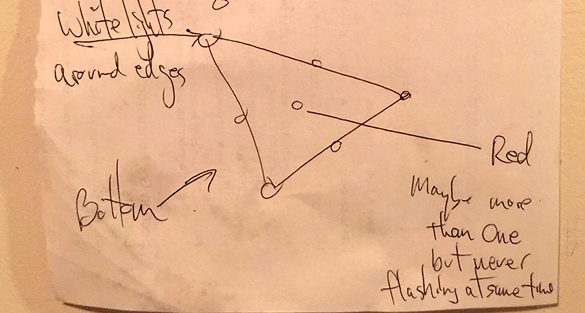 White lights
around edges
Red
Bottom
Maybe more
than one
but never
flashing at same time